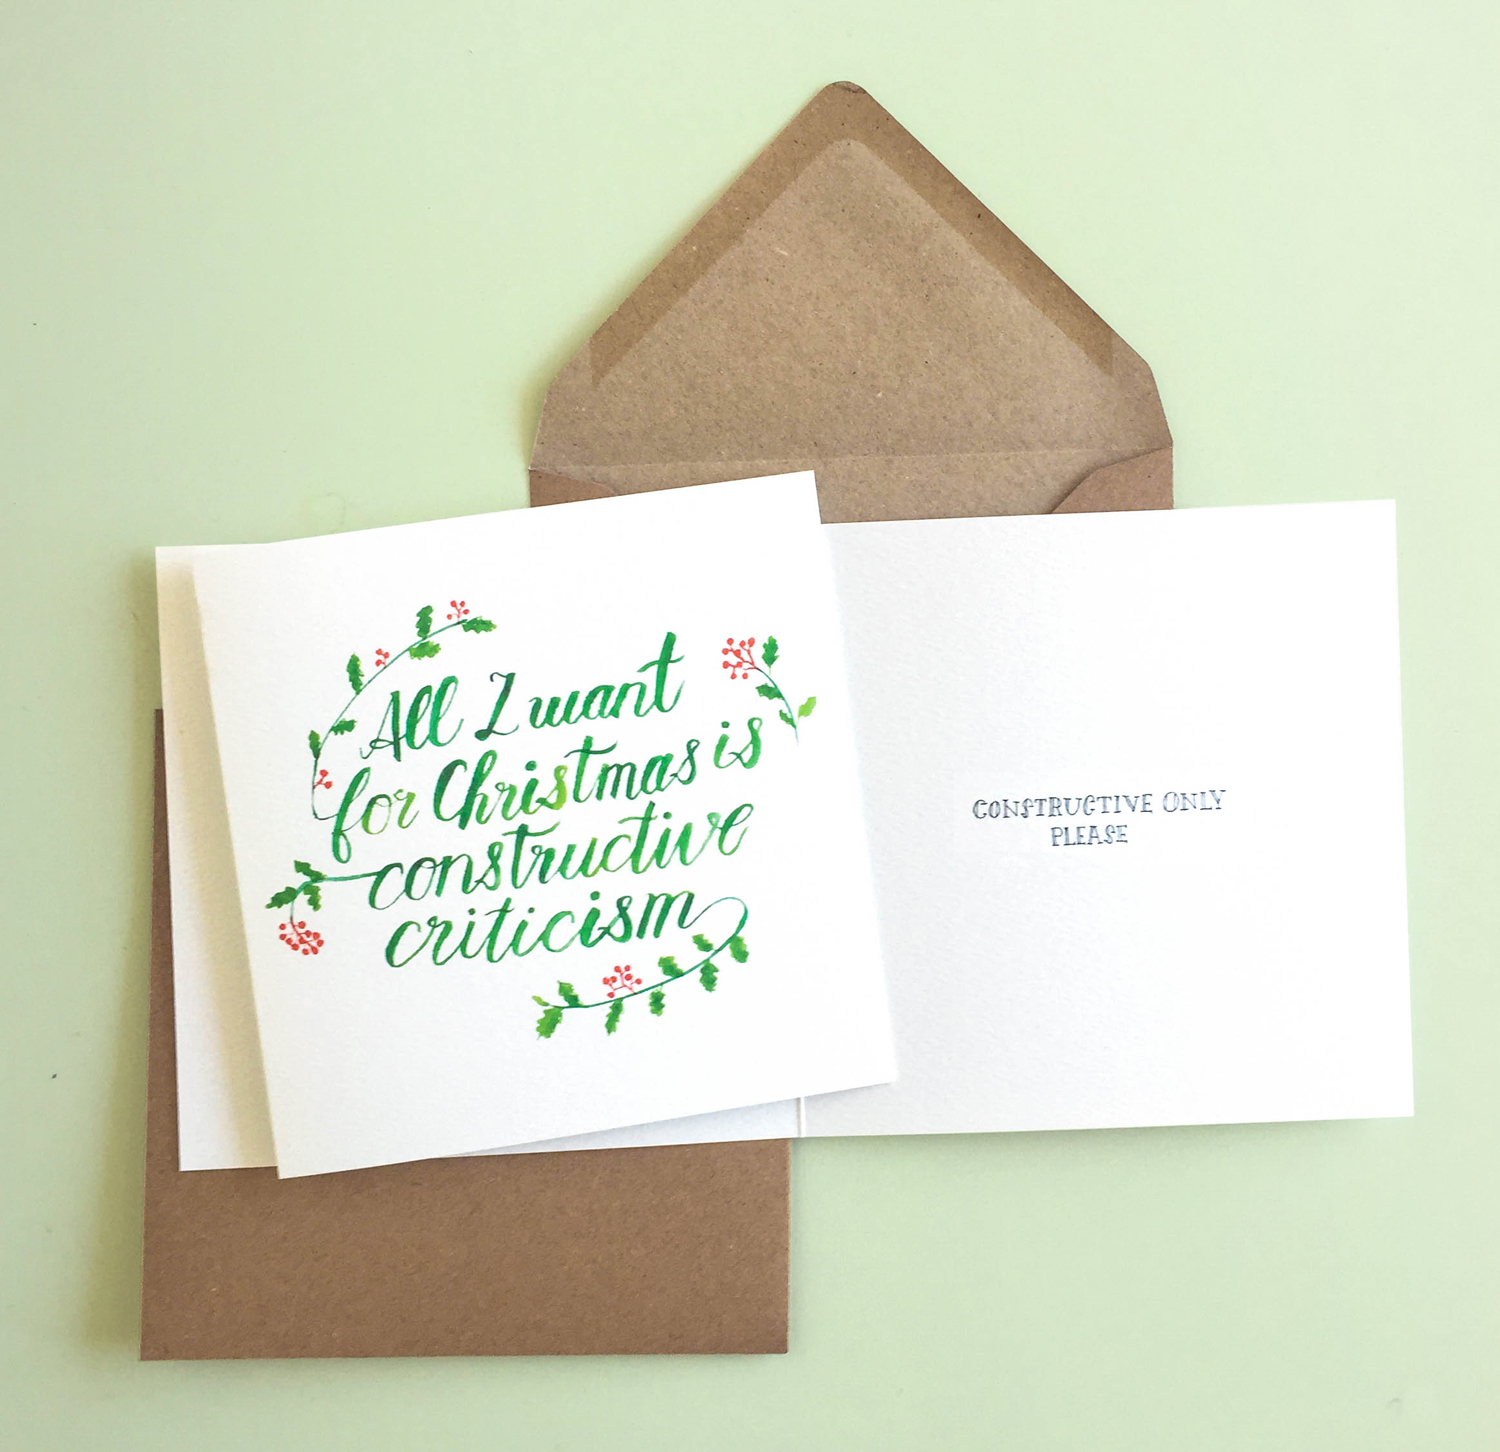 All I want
for Christmas is
constructive
criticism
CONSTRUCTIVE ONLY
PLEASE